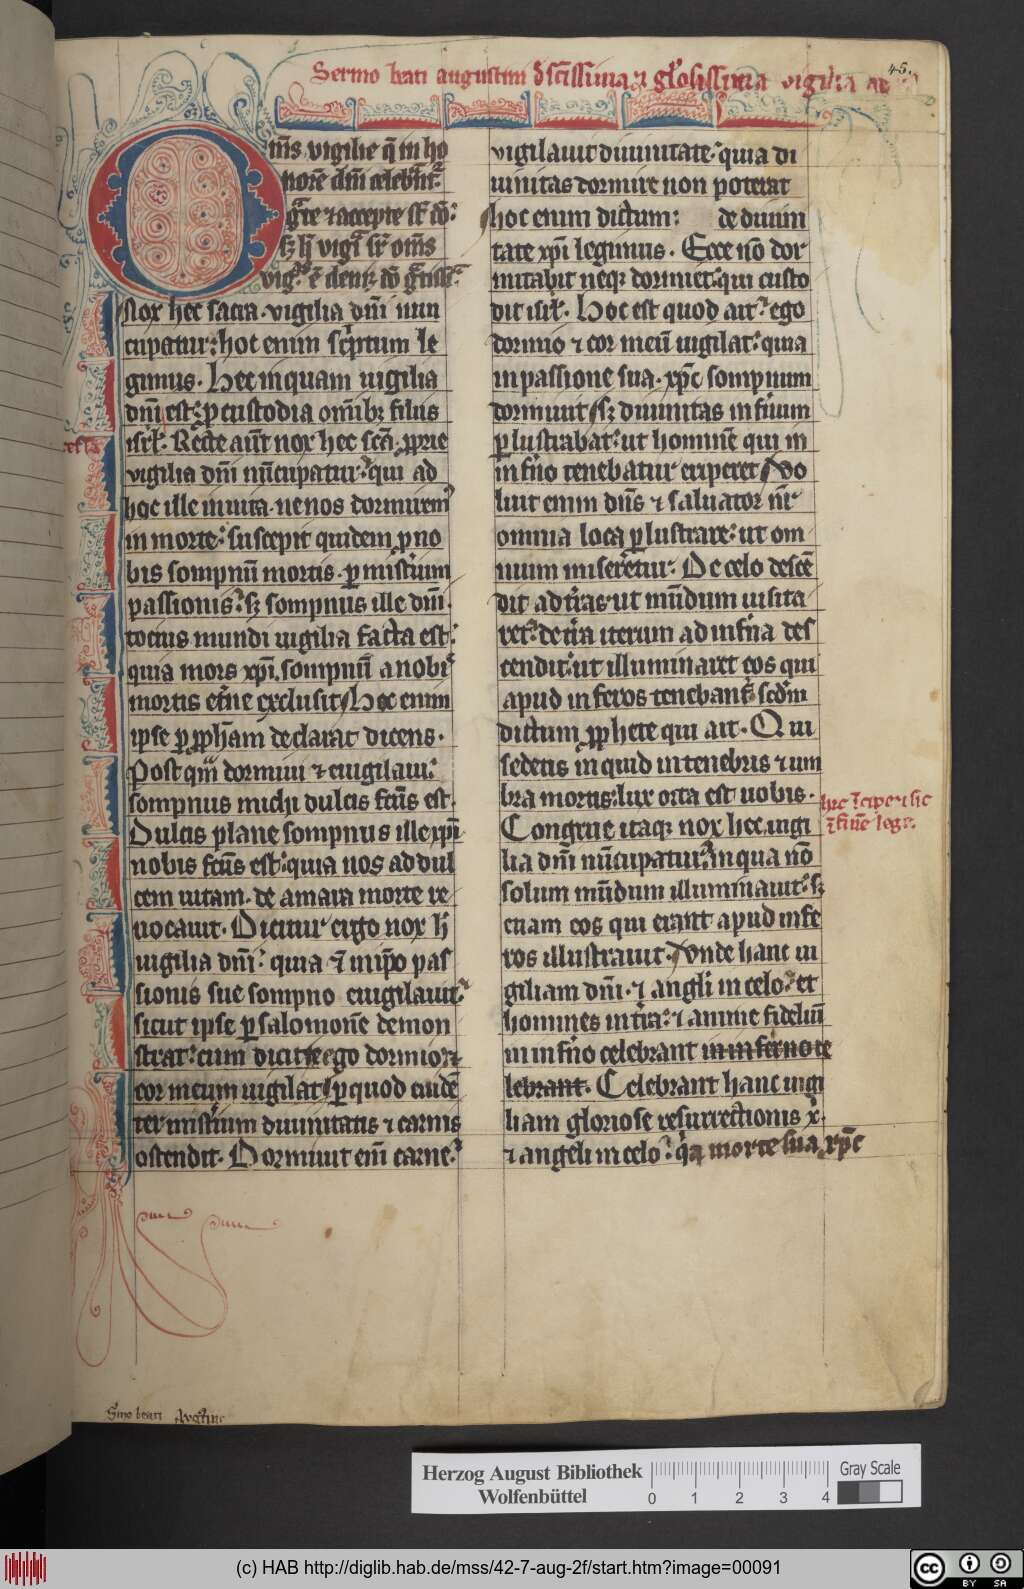 45.
Sermo beati augustini d̄ sc̄issima ⁊ gl̓osissima vigilia
Om̄s vigilie q̄ in ho
norē dn̄i celebrant᷑
gͣte ⁊ accepte st̄ dō:
sꝫ h̄ vigi suꝑ om̄s
Nox hec sacra. vigilia dn̄i nun
cupatur: hoc enim sc̓ptum le
gimus. Hec inquam uigilia
dn̄i est: ꝑ custodia om̄ibꝫ filiis
isrl̓. Recte aut̄ nox hec sc̄a. ꝓprie
vigilia dn̄i nūcupatur: qui ad
hoc ille inuita. ne nos dormirem᷒
in morte: suscepit quidem ꝓ no
bis sompnū mortis. ꝑ misterium
passionis: sꝫ sompnus ille dn̄i.
tocius mundi uigilia facta est:
quia mors xp̄i. sompnū a nobis
mortis et̄ne exclusit. Hoc enim
ipse ꝑ ꝓph̄am declarat dicens.
Post qm̄ dormiui ⁊ euigilaui:
sompnus michi dulcis fc̄us est.
Dulcis plane sompnus ille xp̄i
nobis fc̄us est: quia uos ad dul
cem uitam. de amara morte re
uocauit. Dicitur ergo nox h̄
uigilia dn̄i: quia ⁊ in ip̄o pas
sionis sue sompno euigilauit:
sicut ipse ꝑ salomonē demon
strat: cum dicit ego dormio ⁊
cor meum uigilat. ꝑ quod euidē
ter misterium diuinitatis ⁊ carnis
ostendit. Dormiuit em̄ carne:
vigilauit diuinitate: quia di
uinitas dormire non poterat
hoc enim dictum: de diuini
tate xp̄i legimus. Ecce nō dor
mitabit neqꝫ dormiet: qui custo
dit isrl̓. Hoc est quod ait: ego
dormio ⁊ cor meū uigilat: quia
in passione sua. xp̄c sompnium
dormiuit sꝫ diuinitas infi̓um
ꝑlustrabat: ut hominē qui in
inf̓no tenebatur eriperet. Vo
luit enim dn̄s ⁊ saluator nr̄
omnia loca ꝑlustrare: ut om
nium miseretur. De celo descē
dit ad t̓ras. ut mūdum uisita
ret: de t̓ra iterum ad inf̓na des
cendit: ut illuminaret eos qui
apud inferos tenebant᷑ scd̄m
dictum ꝓphete qui ait. Qui
sedetis inquid in tenebris ⁊ um
bra mortis: lux orta est uobis.
Congrue itaqꝫ nox hec. uigi
lia dn̄i nūcupatur. In qua nō
solum mūdum illuminauit: sꝫ
etiam eos qui erant apud infe
ros illustrauit. Unde hanc ui
giliam dn̄i. ⁊ angl̓i in celo: et
homines in t̓ra: ⁊ anime fideliū
in inf̓no celebrant in inferno ce
lebrant. Celebrant hanc uigi
liam gloriose resurrectionis x̄.
⁊ angeli in celo: q̓a morte sua xp̄c
Smo beati Augustini
Herzog August Bibliothek
Wolfenbüttel
0 1 2 3 4
Gray Scale
(c) HAB http://diglib.hab.de/mss/42-7-aug-2f/start.htm?image=00091
cc BY SA